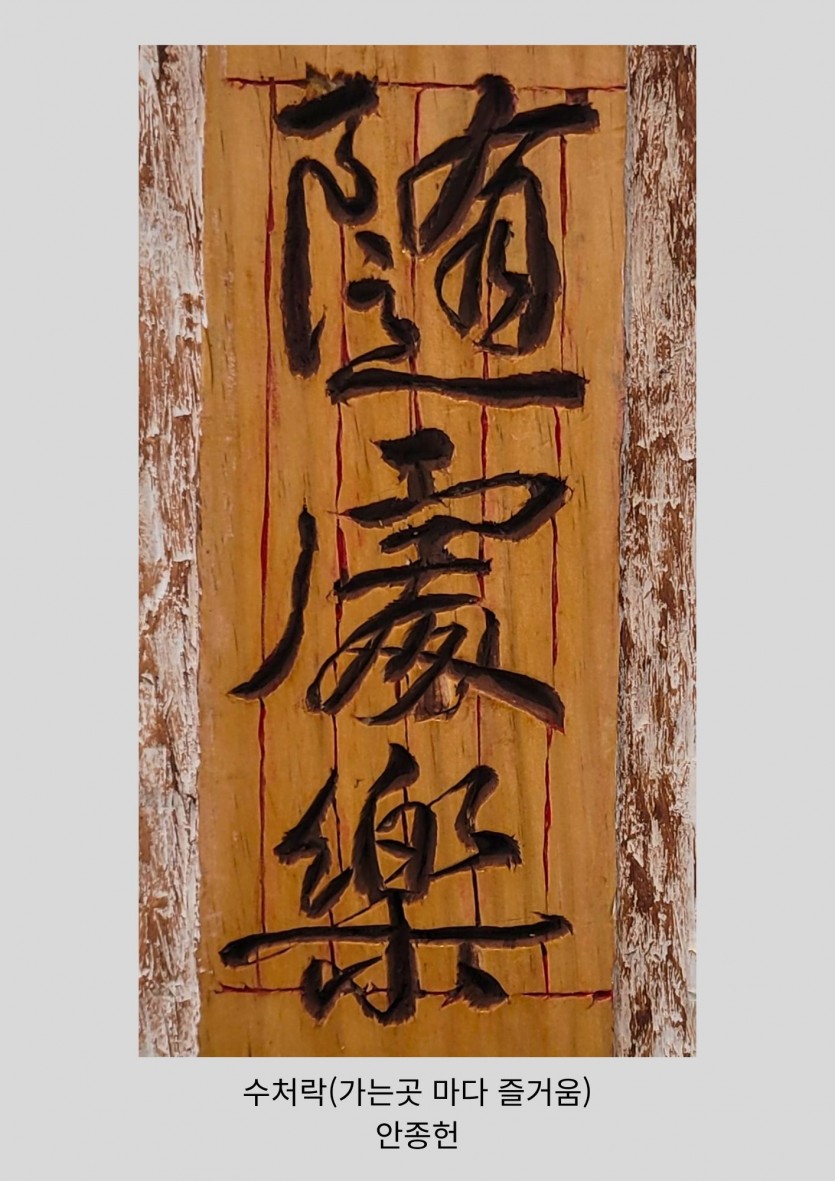 隨處樂
수처락(가는곳 마다 즐거움)
안종헌